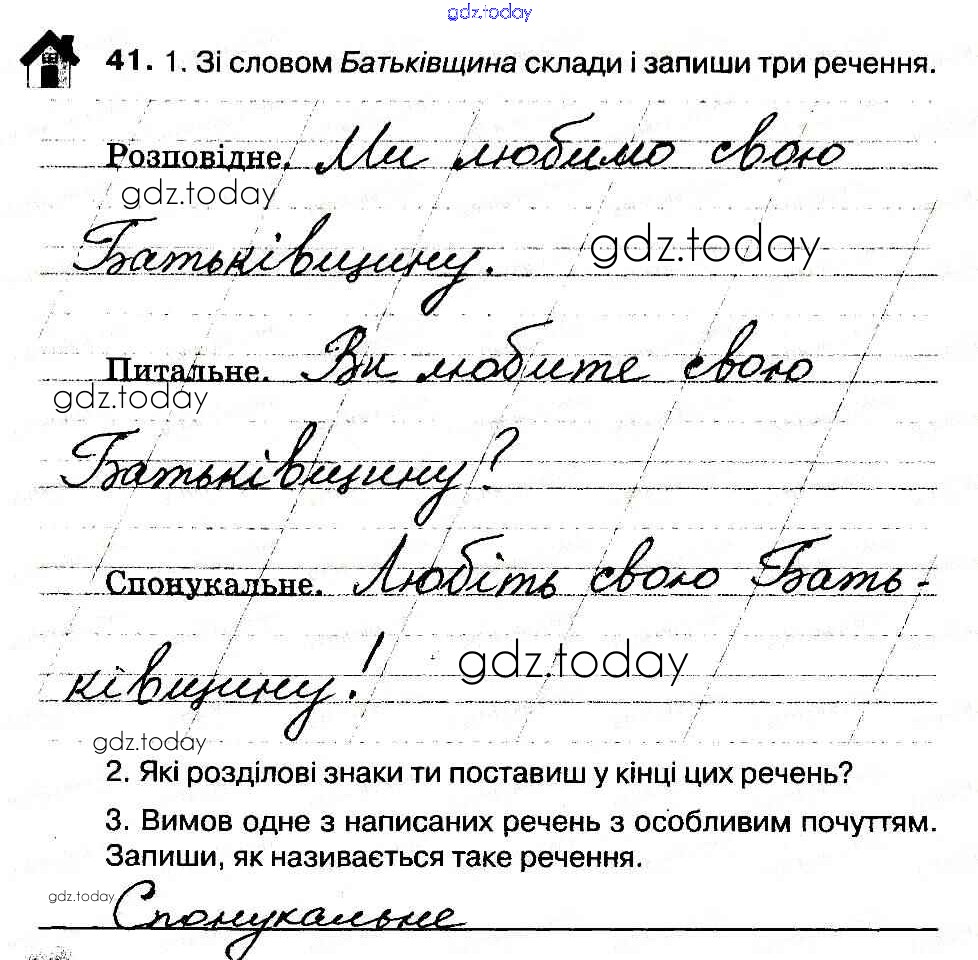 gdz.today
41. 1. Зі словом Батьківщина склади і запиши три речення.
Розповідне. Ми любимо свою
gdz.today
Батьківщину. gdz.today
Питальне. Ви любите свою
gdz.today
Батьківщину?
Спонукальне. Любіть свою Бать-
ківщину! gdz.today
gdz.today
2. Які розділові знаки ти поставиш у кінці цих речень?
3. Вимов одне з написаних речень з особливим почуттям.
Запиши, як називається таке речення.
gdz.today Спонукальне